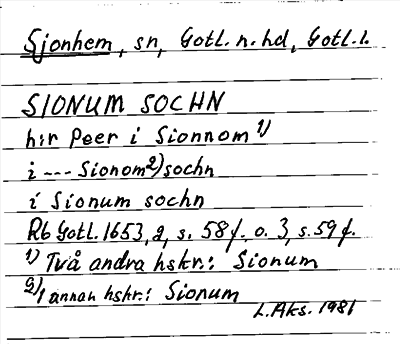 Sjonhem, sn, Gotl. n. hd, Gotl. l.
SIONUM SOCHN
h:r Peer i Sionnom 1)
i --- Sionom 2) sochn
i Sionum sochn
Rb Gotl. 1653, 2, s. 58 f. o. 3, s. 59 f.
1) Två andra hskr.: Sionum
2) I annan hskr.: Sionum
L. Aks. 1981